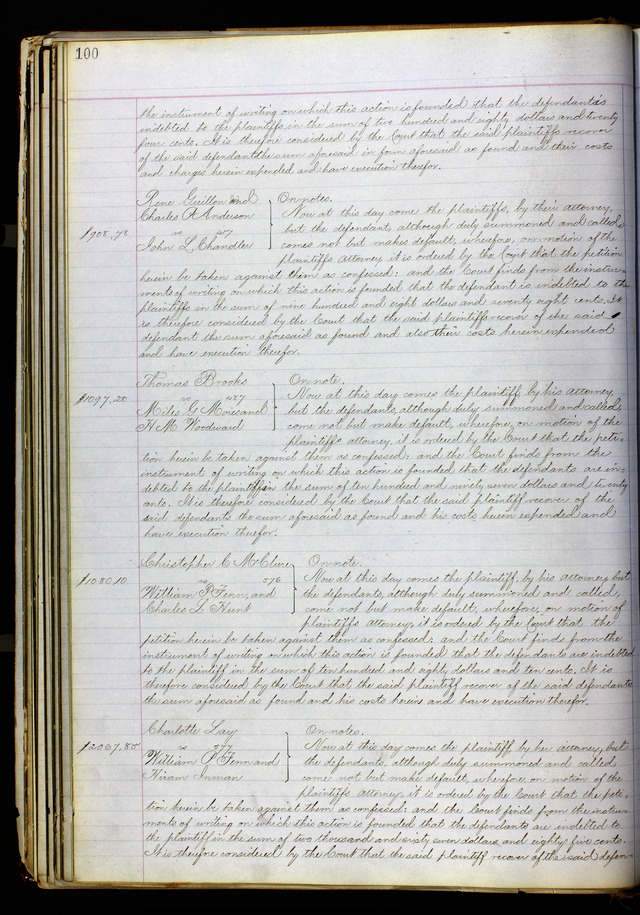 100
the instrument of writing on which this action is founded that the defendant is
indebted to the plaintiffs in the sum of two hundred and eighty dollars and twenty
four cents. It is therefore considered by the Court that the said plaintiffs recover
of the said defendant the sum aforesaid in form aforesaid as found and their costs
and charges herein expended and have execution therefor.
Rene Guillon and } On notes.
Charles P. Anderson Now at this day come the plaintiffs, by their attorney,
$908,78 vs 417 but the defendant, although duly summoned and called
John L. Chandler comes not but makes default, wherefore, on motion of the
plaintiffs attorney, it is ordered by the Court that the petition
herein be taken against them as confessed: and the Court finds from the instru-
ments of writing on which this action is founded that the defendant is indebted to the
plaintiffs in the sum of nine hundred and eight dollars and seventy eight cents. It
is therefore considered by the Court that the said plaintiffs recover of the said
defendant the sum aforesaid as found and also their costs herein expended
and have execution therefor.
Thomas Brooks } On note.
$1097,20 vs 487 Now at this day comes the plaintiff by his attorney,
Miles G. Moies and but the defendants, although duly summoned and called,
H. M. Woodward come not but make default, wherefore, on motion of the
plaintiffs attorney, it is ordered by the Court that the peti-
tion herein be taken against them as confessed: and the Court finds from the
instrument of writing on which this action is founded that the defendants are in-
debted to the plaintiff in the sum of ten hundred and ninety seven dollars and twenty
cents. It is therefore considered by the Court that the said plaintiff recover of the
said defendants the sum aforesaid as found and his costs herein expended and
have execution therefor.
Christopher C. McClure } On note.
$1080,10 vs 576 Now at this day comes the plaintiff, by his attorney, but
William P. Fenn, and the defendants, although duly summoned and called,
Charles L. Hunt come not but make default, wherefore, on motion of
plaintiffs attorney, it is ordered by the Court that the
petition herein be taken against them as confessed: and the Court finds from the
instrument of writing on which this action is founded that the defendants are indebted
to the plaintiff in the sum of ten hundred and eighty dollars and ten cents. It is
therefore considered by the Court that the said plaintiff recover of the said defendants
the sum aforesaid as found and his costs herein and have execution therefor.
Charlotte Lay } On notes.
$2067.85 vs 577 Now at this day comes the plaintiff by her attorney, but
William P. Fenn and the defendants, although duly summoned and called,
Hiram Inman come not but make default, wherefore, on motion of the
plaintiffs attorney, it is ordered by the Court that the peti-
tion herein be taken against them as confessed: and the Court finds from the instru-
ments of writing on which this action is founded that the defendants are indebted to
the plaintiff in the sum of two thousand and sixty seven dollars and eighty five cents.
It is therefore considered by the Court that the said plaintiff recover of the said defen-